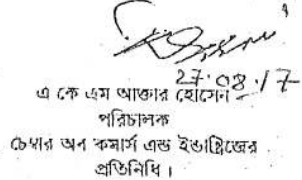 27.08.17
এ কে এম আক্তার হোসেন
পরিচালক
চেম্বার অব কমার্স এন্ড ইন্ডাষ্ট্রিজের
প্রতিনিধি।